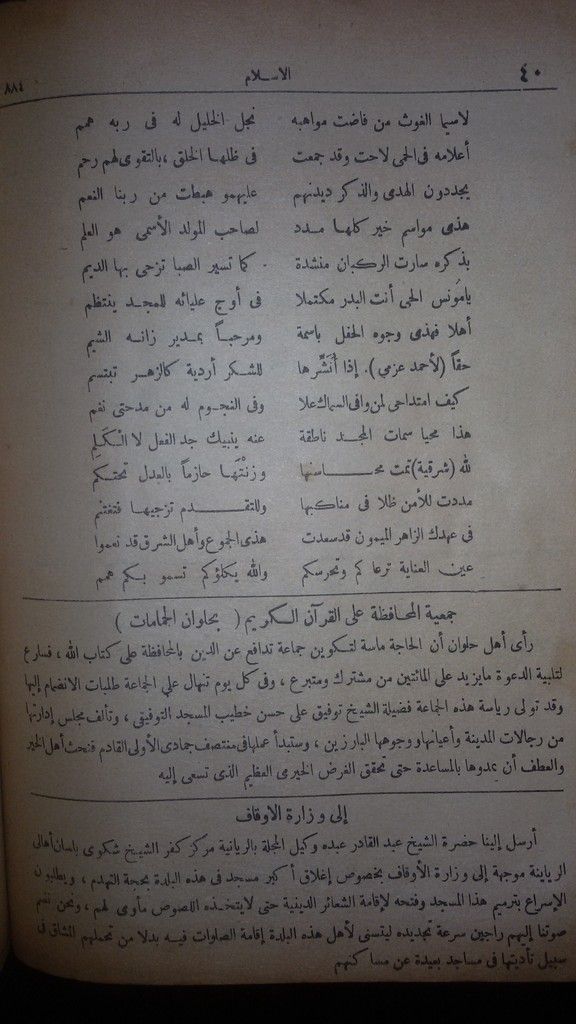 ٤٠ الاسلام ٨٨٤
لاسيما الغوث من فاضت مواهبه نجل الخليل له فى ربه همم
أعلامه فى الحى لاحت وقد جمعت فى ظلها الخلق ،بالتقوى لهم رحم
يجددون الهدى والذكر ديدنهم عليهمو هبطت من ربنا النعم
هذى مواسم خير كلها مدد لصاحب المولد الأسمى هو العلم
بذكره سارت الركبان منشدة كما تسير الصبا تزجى بها الديم
يامؤنس الحى أنت البدر مكتملا فى أوج عليائه للمجد ينتظم
أهلا فهذى وجوه الحفل باسمة ومرحباً بمدير زانه الشيم
حقاً (لأحمد عزمى). إذا أُنَشِّرها للشكر أردية كالزهر تبتسم
كيف امتداحى لمن وافى السماك علا وفى النجوم له من مدحتى نغم
هذا محيا سمات المجد ناطقة عنه ينبيك جد الفعل لا الْكَلِمِ
لله (شرقية) تمت محاسنها وزنْتَها حازماً بالعدل تحتكم
مددت للأمن ظلا فى مناكبها وللتقدم تزجيها فتغتنم
فى عهدك الزاهر الميمون قد سعدت هذى الجموع وأهل الشرق قد نعموا
عين العناية ترعاكم وتحرسكم والله يكلؤكم تسمو بكم همم
جمعية المحافظة على القرآن الكريم ( بحلوان الحمامات )
رأى أهل حلوان أن الحاجة ماسة لتكوين جماعة تدافع عن الدين بالمحافظة على كتاب الله ، فسارع
لتلبية الدعوة مايزيد على المائتين من مشترك ومتبرع ، وفى كل يوم تنهال على الجماعة طلبات الانضمام إليها
وقد تولى رياسة هذه الجماعة فضيلة الشيخ توفيق على حسن خطيب المسجد التوفيقى ، وتألف مجلس إدارتها
من رجالات المدينة وأعيانها ووجوهها البارزين ، وستبدأ عملها فى منتصف جمادى الأولى القادم فنحث أهل الخير
والعطف أن يمدوها بالمساعدة حتى تحقق الغرض الخيرى العظيم الذى تسعى إليه
إلى وزارة الاوقاف
أرسل إلينا حضرة الشيخ عبد القادر عبده وكيل المجلة بالريانية مركز كفر الشيخ شكوى بلسان أهالى
الرياينة موجهة إلى وزارة الأوقاف بخصوص إغلاق أكبر مسجد فى هذه البلدة بحجة التهدم ، ويطلبون
الإسراع بترميم هذا المسجد وفتحه لإقامة الشعائر الدينية حتى لايتخذه اللصوص مأوى لهم ، ونحن نضم
صوتنا إليهم راجين سرعة تجديده ليتسنى لأهل هذه البلدة إقامة الصلوات فيه بدلا من تحملهم المشاق فى
سبيل تأديتها فى مساجد بعيدة عن مساكنهم